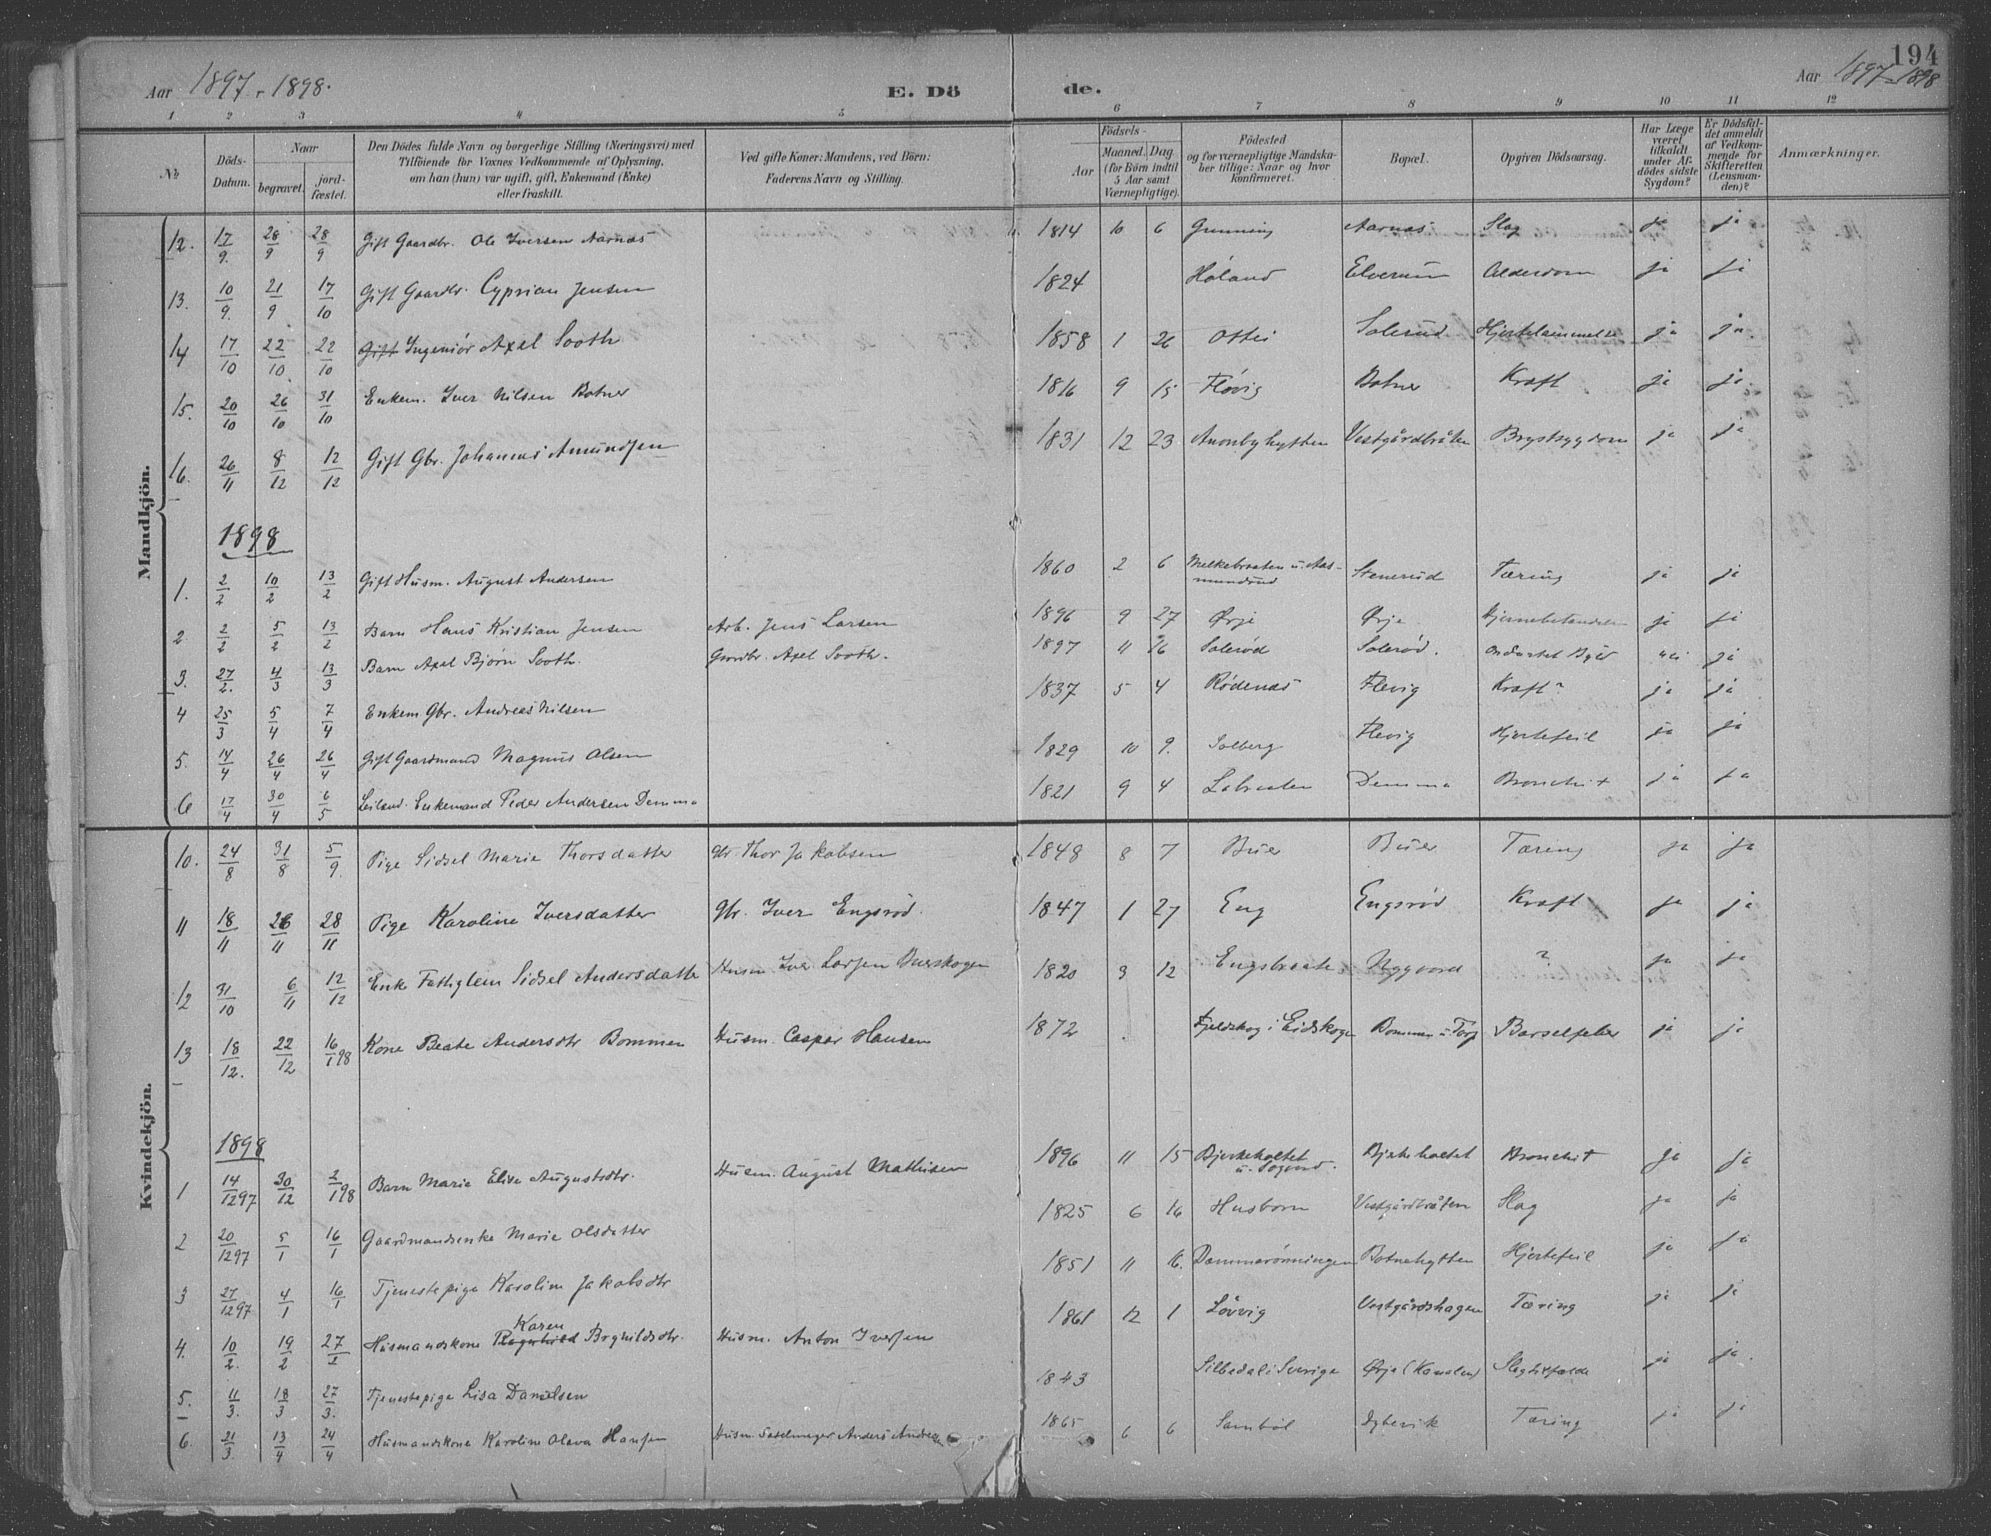 194
Aar 1897-1898. E. Dö de. Aar 1897-1898
1 2 3 4 5 6 7 8 9 10 11 12
№ Döds-Datum. Naar begravet. jordfæstet. Den Dödes fulde Navn og borgerlige Stilling (Næringsvei) med Tilföiende for Voxnes Vedkommende af Oplysning, om han (hun) var ugift, gift, Enkemand (Enke) eller fraskilt. Ved gifte Koner: Mandens, ved Börn: Faderens Navn og Stilling. Födsels- Aar Maaned. Dag. (for Börn indtil 5 Aar samt Værnepligtige). Födested og for værnepligtige Mandskaber tillige: Naar og hvor konfirmeret. Bopæl. Opgiven Dödsaarsag. Har Læge været tilkaldt under Afdödes sidste Sygdom? Er Dödsfaldet anmeldt af Vedkommende for Skifteretten (Lensmanden)? Anmærkninger.
Mandkjön.
12. 17/9. 28/9 28/9 Gift Gaardbr. Ole Iversen Aarnæs 1814 10 6 Grinning Aarnæs Slag ja ja
13. 10/9. 21/9 17/10 Gift Gaardbr. Cyprian Jensen 1824 Høland Elverum Alderdom ja ja
14 17/10 22/10 22/10 Gift Ingeniør Axel Sooth 1858 1 26 Ottei Solerud Hjertelammelse ja ja
15. 20/10 26/10 31/10 Enkem. Iver Nilsen Botner 1816 9 15 Fløvig Botner Kræft ja ja
16. 26/11 8/12 12/12 Gift Gbr. Johannes Amundsen 1831 12 23 Anonbyhytten Vestgårdbråten Brystsygdom ja ja
1898
1. 2/2 10/2 13/2 Gift Husm. August Andersen 1860 2 6 Melkebraaten u. Aasmundrud Stenerud Tæring ja ja
2 2/2 5/2 13/2 Barn Hans Kristian Jensen Arb. Jens Larsen 1896 9 27 Ørje Ørje Hjernebetændelse ja ja
3. 27/2. 4/3 13/3 Barn Axel Bjørn Sooth. Gaardbr. Axel Sooth. 1897 11 16 Solerød Solerød. Ondartet Byld nei ja
4 25/3 5/4 7/4 Enkem Gbr. Andreas Nilsen 1837 5 4 Rødenæs Flevig Kræft? ja ja
5. 14/4 26/4 26/4 Gift Gaardmand Magnus Olsen 1829 10 9. Solberg Flevig Hjertefeil ja ja
6 17/4 30/4 6/5 Leiland. Enkemand Peder Andersen Demma 1821 9 4 Labraaten Demma Bronchit ja ja
Kvindekjön.
10. 24/8 31/8 5/9. Pige Sidsel Marie Thorsdatter Gbr. Thor Jakobsen 1848 8 7 Buer Buer Tæring ja ja
11 18/11 26/11 28/11 Pige Karoline Iversdatter Gbr. Iver Engsrød. 1847 1 27 Eng Engsrød Kræft ja ja
12 31/10 6/11 12/12 Enke Fattiglem Sidsel Andersdatter Husm. Iver Larsen Buerskogen 1820 3 12 Engsbraate Nygaard ? ja ja
13 18/12. 22/12 16/1 98 Kone Beate Andersdtr Bommen Husm. Caspar Hansen 1872 Fjeldskog i Eidskogen Bommen u. Torp Barselfeber ja ja
1898
1 14/12 97 30/12 2/1 98 Barn Marie Elise Augustsdtr. Husm. August Mathisen 1896 11 15 Bjerkeholtet u. Sogvord. Bjerkeholtet Bronchit ja ja
2 20/12 97 5/1 16/1 Gaardmandsenke Marie Olsdatter 1825 6 16 Husborn Vestgårdbråten Slag ja ja
3 27/12 97 4/1 16/1 Tjenestepige Karolin Jakobsdtr 1851 11 16. Dammerønningen Botnehytten Hjertefeil ja ja
4. 10/2. 19/2 27/2 Husmandskone Ragnhild Karen Brynildsdtr. Husm. Anton Iversen 1861 12 1 Løvvig Vestgårdshagen Tæring ja ja
5. 11/3. 18/3 27/3. Tjenestepige Lisa Danielsen 1843 Silbodal i Sverige Ørje (Kanalen) Slagtilfælde ja ja.
6. 21/3 13/4 24/4 Husmandskone Karoline Olava Hansen Husm. Sadelmager Anders Andresen 1865 6 6 Sambøl Tæring ja ja